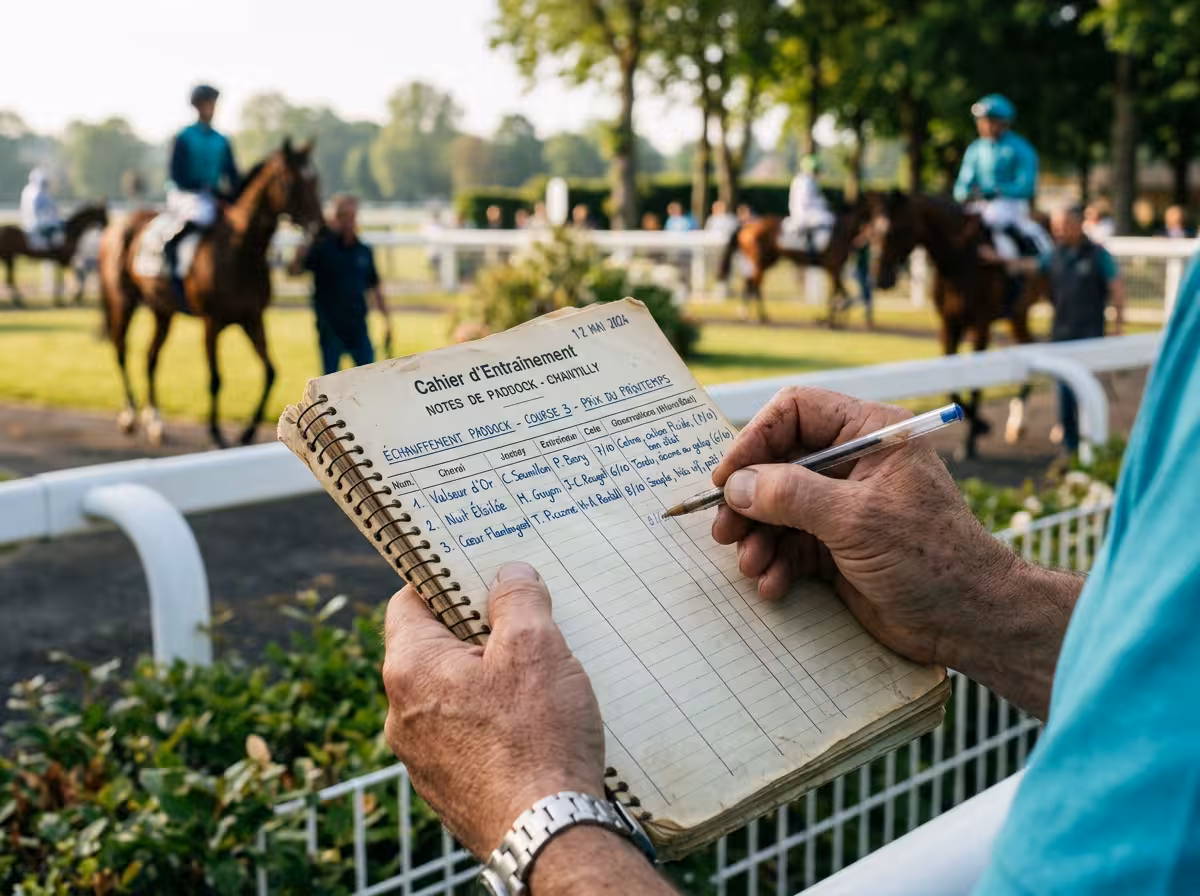 12 MAI 2024
Cahier d'Entraînement
NOTES DE PADDOCK - CHANTILLY
ÉCHAUFFEMENT PADDOCK - COURSE 3 - PRIX DU PRINTEMPS
Num. Cheval Jockey Entraîneur Cote Observations
1. Valseur d'Or C. Soumillon P. Bary 7/10 Calme, action fluide,
2. Nuit Étoilée M. Guyon J-C. Rouget 6/10 Tendu,
3. Cœur Flamboyant T. Piccone 8/10 Souple, très vif,